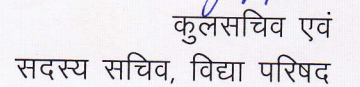 कुलसचिव एवं
सदस्य सचिव, विद्या परिषद